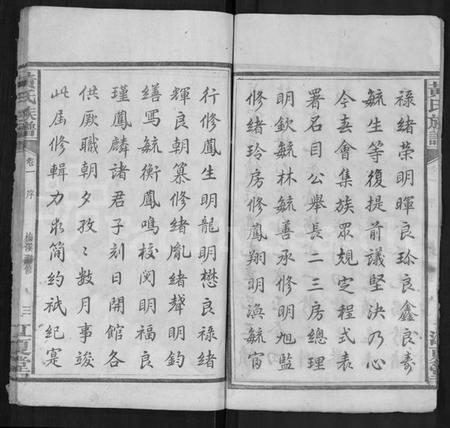 祿緒榮明暉良玲良鑫良壽
毓生等復提前議堅決乃心
今春會集族眾規定程式表
署名目公舉長二三房總理
明欽毓林毓善承修明旭監
修緒玲房修鳳翔明渙毓甯
行修鳳生明龍明懋良祿緒
輝良朝纂修緒胤緒聲明鈞
瑾鳳麟諸君子刻日開館各
繕寫毓衡鳳鳴校閱明福良
供厥職朝夕孜孜數月事竣
此届修輯力求簡約祇紀寔
黃氏族譜
卷一
序
三
江夏堂